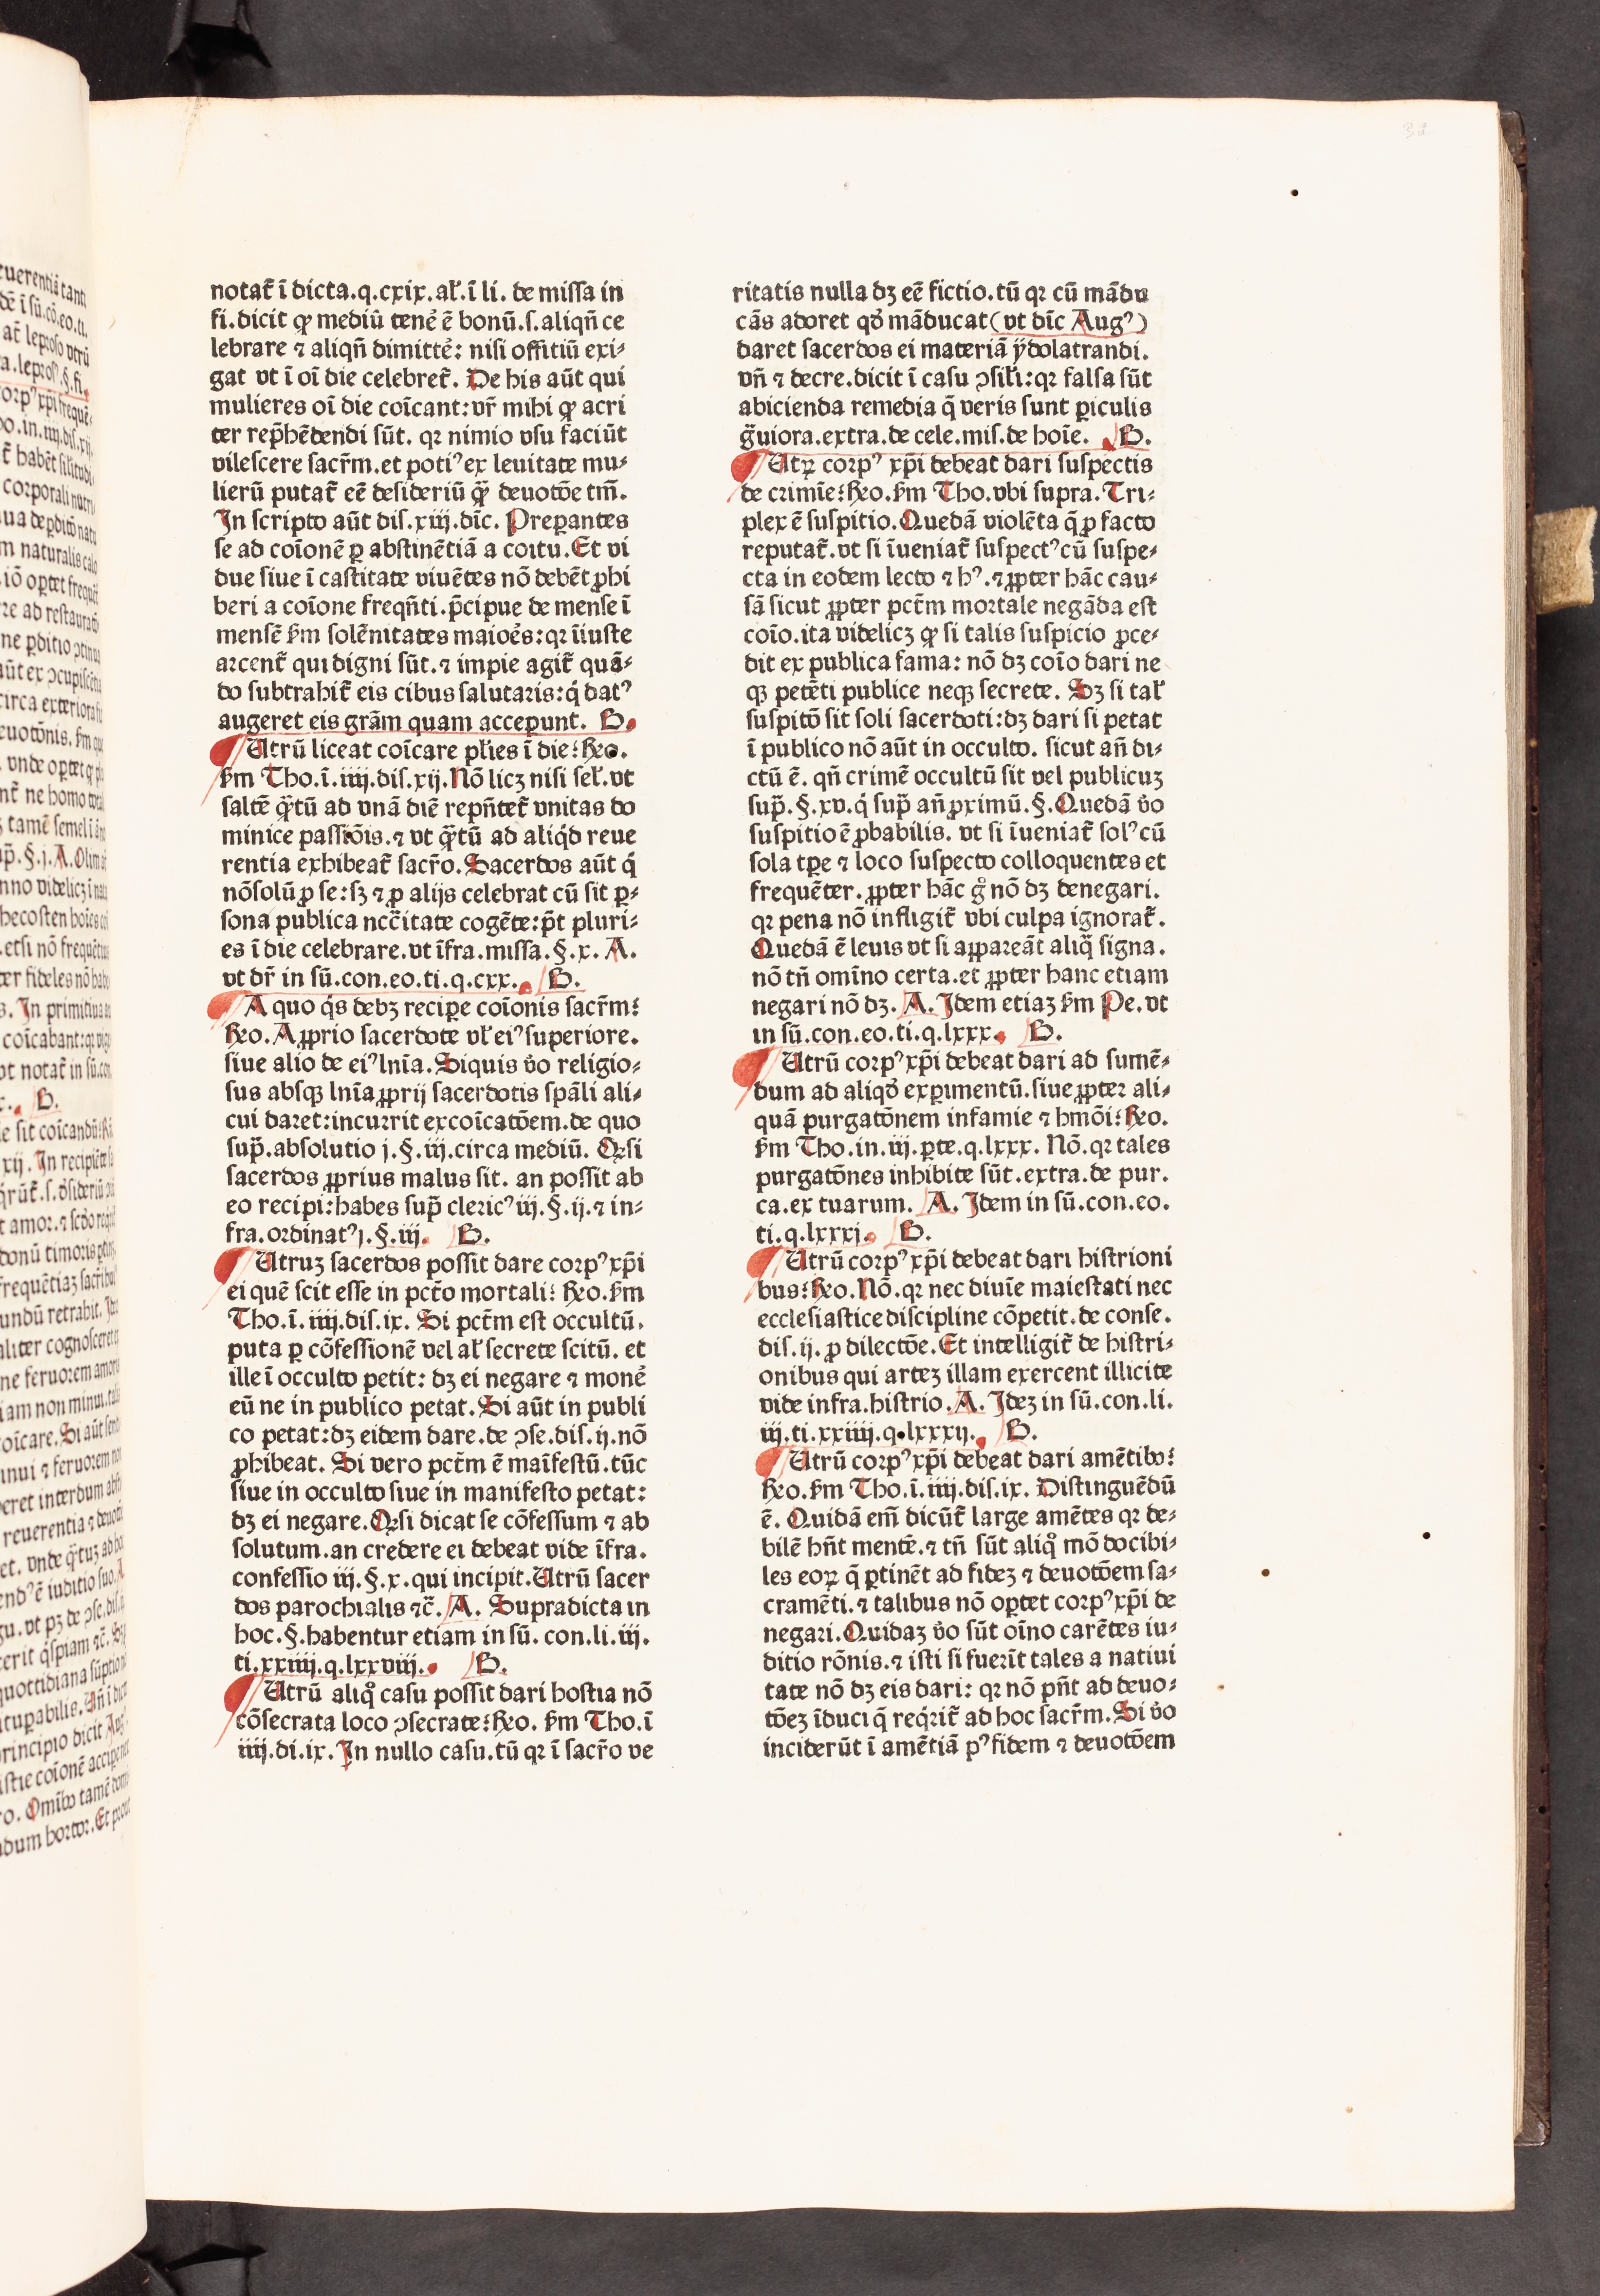 notat᷑ ī dicta.q.cxix.al̄.ī li. de missa in
fi.dicit ꝙ mediū tenē ē bonū.s.aliqn̄ ce
lebrare ⁊ aliqn̄ dimittē: nisi offitiū exi⸗
gat vt ī oī die celebret᷑. De his aūt qui
mulieres oī die coīcant: vr̄ mihi ꝙ acri
ter rep̄hēdendi sūt. qꝛ nimio vsu faciūt
vilescere sacr̄m.et potiꝰ ex leuitate mu⸗
lierū putat᷑ eē desideriū q̄ꝫ deuotōe tm̄.
In scripto aūt dis.xiij.dīc. Preꝑantes
se ad coīonē ꝑ abstinētiā a coitu. Et vi
due siue ī castitate viuētes nō debēt ꝓhi
beri a coīone freqn̄ti. p̄cipue de mense ī
mensē ẜm solēnitates maioēs: qꝛ īiuste
arcent᷑ qui digni sūt. ⁊ impie agit᷑ quā⸗
do subtrahit᷑ eis cibus salutaris: q̇ datꝰ
augeret eis gr̄am quam acceꝑunt. B.
Utrū liceat coīcare pl̄ies ī die: Rꝫo.
ẜm Tho.ī.iiij.dis.xij. Nō licꝫ nisi sel̄. vt
saltē q̄ꝫtū ad vnā diē repn̄tet᷑ vnitas do
minice passiōis. ⁊ vt q̄ꝫtū ad aliq̇d reue
rentia exhibeat᷑ sacr̄o. Sacerdos aūt q̇
nōsolū ꝓ se: sꝫ ⁊ ꝓ alijs celebrat cū sit ꝑ⸗
sona publica ncc̄itate cogēte: pt̄ pluri⸗
es ī die celebrare. vt īfra.missa.§.x. A.
vt dr̄ in sū.con.eo.ti.q.cxx. B.
A quo q̇s debꝫ reciꝑe coīonis sacr̄m:
Rꝫo. A ꝓprio sacerdote vl̄ eiꝰ superiore.
siue alio de eiꝰ ln̄ia. Siquis ṽo religio⸗
sus absqꝫ ln̄ia ꝓprij sacerdotis sp̄ali ali⸗
cui daret: incurrit excoīcatōem. de quo
sup̄. absolutio j.§.iij. circa mediū. Qꝛ si
sacerdos ꝓprius malus sit. an possit ab
eo recipi: habes sup̄ clericꝰ iij.§.ij. ⁊ in⸗
fra.ordinatꝰ j.§.iij. B.
Utruꝫ sacerdos possit dare corpꝰ xp̄i
ei quē scit esse in pct̄o mortali: Rꝫo. ẜm
Tho.ī.iiij.dis.ix. Si pct̄m est occultū.
puta ꝑ cōfessionē vel al̄ secrete scitū. et
ille ī occulto petit: dꝫ ei negare ⁊ monē
eū ne in publico petat. Si aūt in publi
co petat: dꝫ eidem dare. de ꝯse.dis.ij.nō
ꝓhibeat. Si vero pct̄m ē maīfestū. tūc
siue in occulto siue in manifesto petat:
dꝫ ei negare. Qꝛ si dicat se cōfessum ⁊ ab
solutum. an credere ei debeat vide īfra.
confessio iij.§.x. qui incipit. Utrū sacer
dos parochialis ⁊c̄. A. Supradicta in
hoc.§.habentur etiam in sū.con.li.iij.
ti.xxiiij.q.lxxviij. B.
Utrū aliqͦ casu possit dari hostia nō
cōsecrata loco ꝯsecrate: Rꝫo. ẜm Tho.ī
iiij.di.ix. In nullo casu. tū qꝛ ī sacr̄o ve
ritatis nulla dꝫ eē fictio. tū qꝛ cū mādu
cās adoret qḋ māducat (vt dīc Augꝰ)
daret sacerdos ei materiā ydolatrandi.
vn̄ ⁊ decre.dicit ī casu ꝯsil̄i: qꝛ falsa sūt
abicienda remedia q̄ veris sunt ꝑiculis
g̃uiora.extra.de cele.mis.de hoīe. B.
Utꝝ corpꝰ xp̄i debeat dari suspectis
de crimīe: Rꝫo. ẜm Tho.vbi supra. Tri⸗
plex ē suspitio. Quedā violēta q̄ ꝓ facto
reputat᷑. vt si īueniat᷑ suspectꝰ cū suspe⸗
cta in eodem lecto ⁊ hꝰ. ⁊ ꝓpter hāc cau⸗
sā sicut ꝓpter pct̄m mortale negāda est
coīo. ita videlicꝫ ꝙ si talis suspicio ꝓce⸗
dit ex publica fama: nō dꝫ coīo dari ne
qꝫ petēti publice neqꝫ secrete. Sꝫ si tal̄
suspitō sit soli sacerdoti: dꝫ dari si petat
ī publico nō aūt in occulto. sicut an̄ di⸗
ctū ē. qn̄ crimē occultū sit vel publicuꝫ
sup̄.§.xv. q̇ sup̄ an̄ ꝓximū.§. Quedā ṽo
suspitio ē ꝓbabilis. vt si īueniat᷑ solꝰ cū
sola tꝑe ⁊ loco suspecto colloquentes et
frequēter. ꝓpter hāc gͦ nō dꝫ denegari.
qꝛ pena nō infligit᷑ vbi culpa ignorat᷑.
Quedā ē leuis vt si aꝑpareāt aliq̄ signa.
nō tn̄ omīno certa. et ꝓpter hanc etiam
negari nō dꝫ. A. Idem etiaꝫ ẜm Pe. vt
in sū.con.eo.ti.q.lxxx. B.
Utrū corpꝰ xp̄i debeat dari ad sumē⸗
dum ad aliqḋ exꝑimentū. siue ꝓpter ali⸗
quā purgatōnem infamie ⁊ hmōi: Rꝫo.
ẜm Tho.in.iij.ꝑte.q.lxxx. Nō. qꝛ tales
purgatōnes inhibite sūt. extra.de pur.
ca.ex tuarum. A. Idem in sū.con.eo.
ti.q.lxxxj. B.
Utrū corpꝰ xp̄i debeat dari histrioni
bus: Rꝫo. Nō. qꝛ nec diuīe maiestati nec
ecclesiastice discipline cōpetit. de conse.
dis.ij. ꝓ dilectōe. Et intelligit᷑ de histri⸗
onibus qui arteꝫ illam exercent illicite
vide infra.histrio. A. Ideꝫ in sū.con.li.
iij.ti.xxiiij.q.lxxxij. B.
Utrū corpꝰ xp̄i debeat dari amētibꝰ:
Rꝫo. ẜm Tho.ī.iiij.dis.ix. Distinguēdū
ē. Quidā em̄ dicūt᷑ large amētes qꝛ de⸗
bilē hn̄t mentē. ⁊ tn̄ sūt aliqͦ mō docibi⸗
les eoꝝ q̄ ꝑtinēt ad fideꝫ ⁊ deuotōem sa⸗
cramēti. ⁊ talibus nō oꝑtet corpꝰ xp̄i de
negari. Quidaꝫ ṽo sūt oīno carētes iu⸗
ditio rōnis. ⁊ isti si fuerīt tales a natiui
tate nō dꝫ eis dari: qꝛ nō pn̄t ad deuo⸗
tōeꝫ īduci q̄ req̇rit᷑ ad hoc sacr̄m. Si ṽo
inciderūt ī amētiā pꝰ fidem ⁊ deuotōem